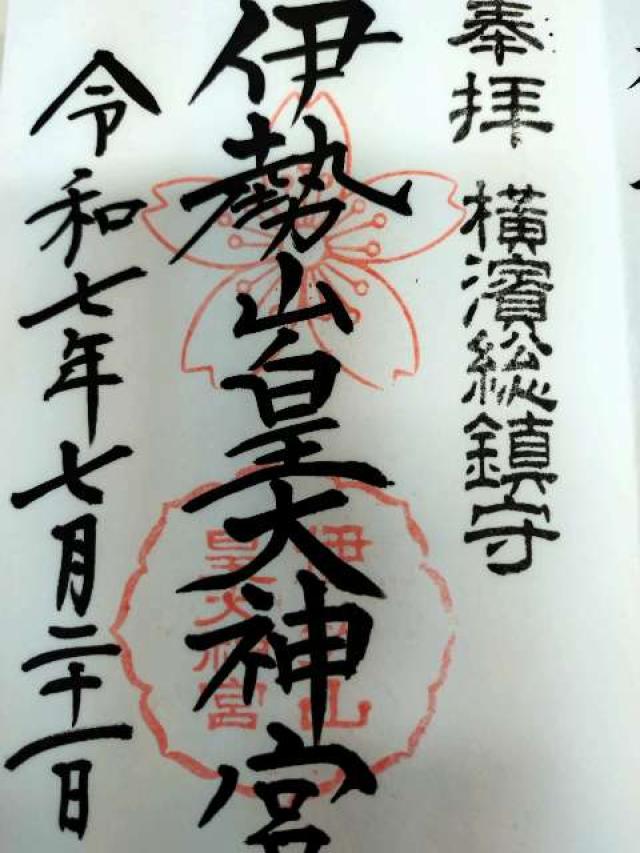 奉拝 横濱総鎮守
伊勢山皇大神宮
伊勢山
皇大神宮
令和七年七月二十一日